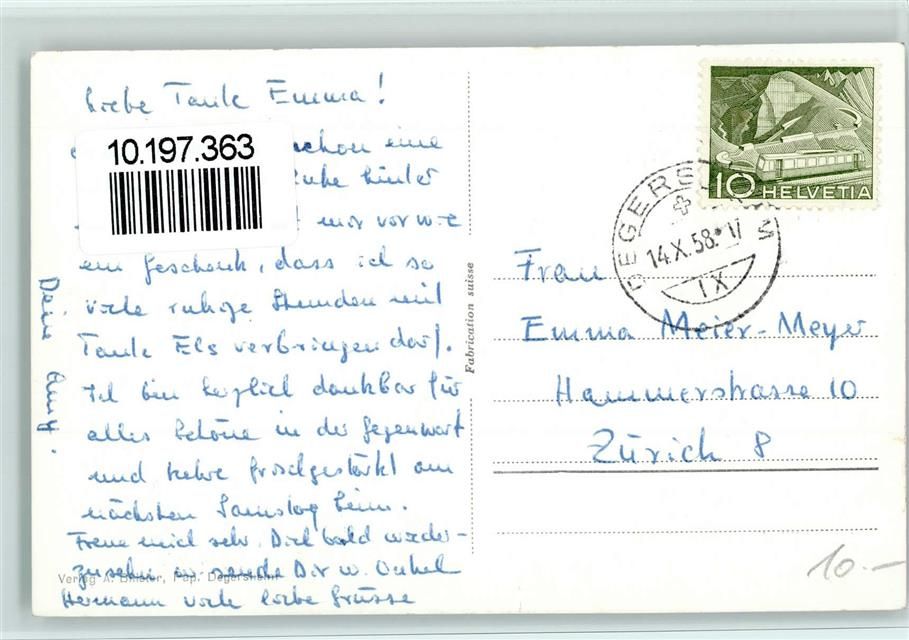 Liebe Tante Emma!
schon eine
10.197.363
Ruhe hinter
mir vor wie
ein Geschenk, dass ich so
viele ruhige Stunden mit
Tante Els verbringen darf.
Ich bin herzlich dankbar für
alles Schöne in der Gegenwart
und kehre frischgestärkt am
nächsten Samstag heim.
Freue mich sehr, Dich bald wieder-
zusehen u. sende Dir u. Onkel
Hermann viele liebe Grüsse
Deine
Verlag A. Pap. Degersheim
Fabrication suisse
10 HELVETIA
DEGERSHEIM
14.X.58
IX
Frau
Emma Meier-Meyer
Hammerstrasse 10
Zürich 8
10.-